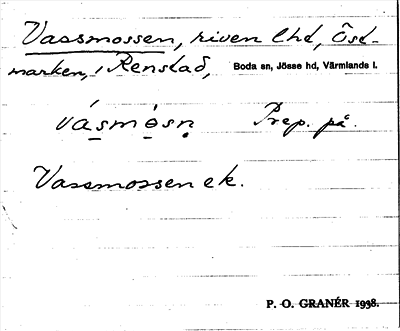 Vassmossen, riven lhd, Östmarken, i Renstad, Boda sn, Jösse hd, Värmlands l.
vásmòsn. Prep. på.
Vassmossen ek.
P. O. GRANÉR 1938.